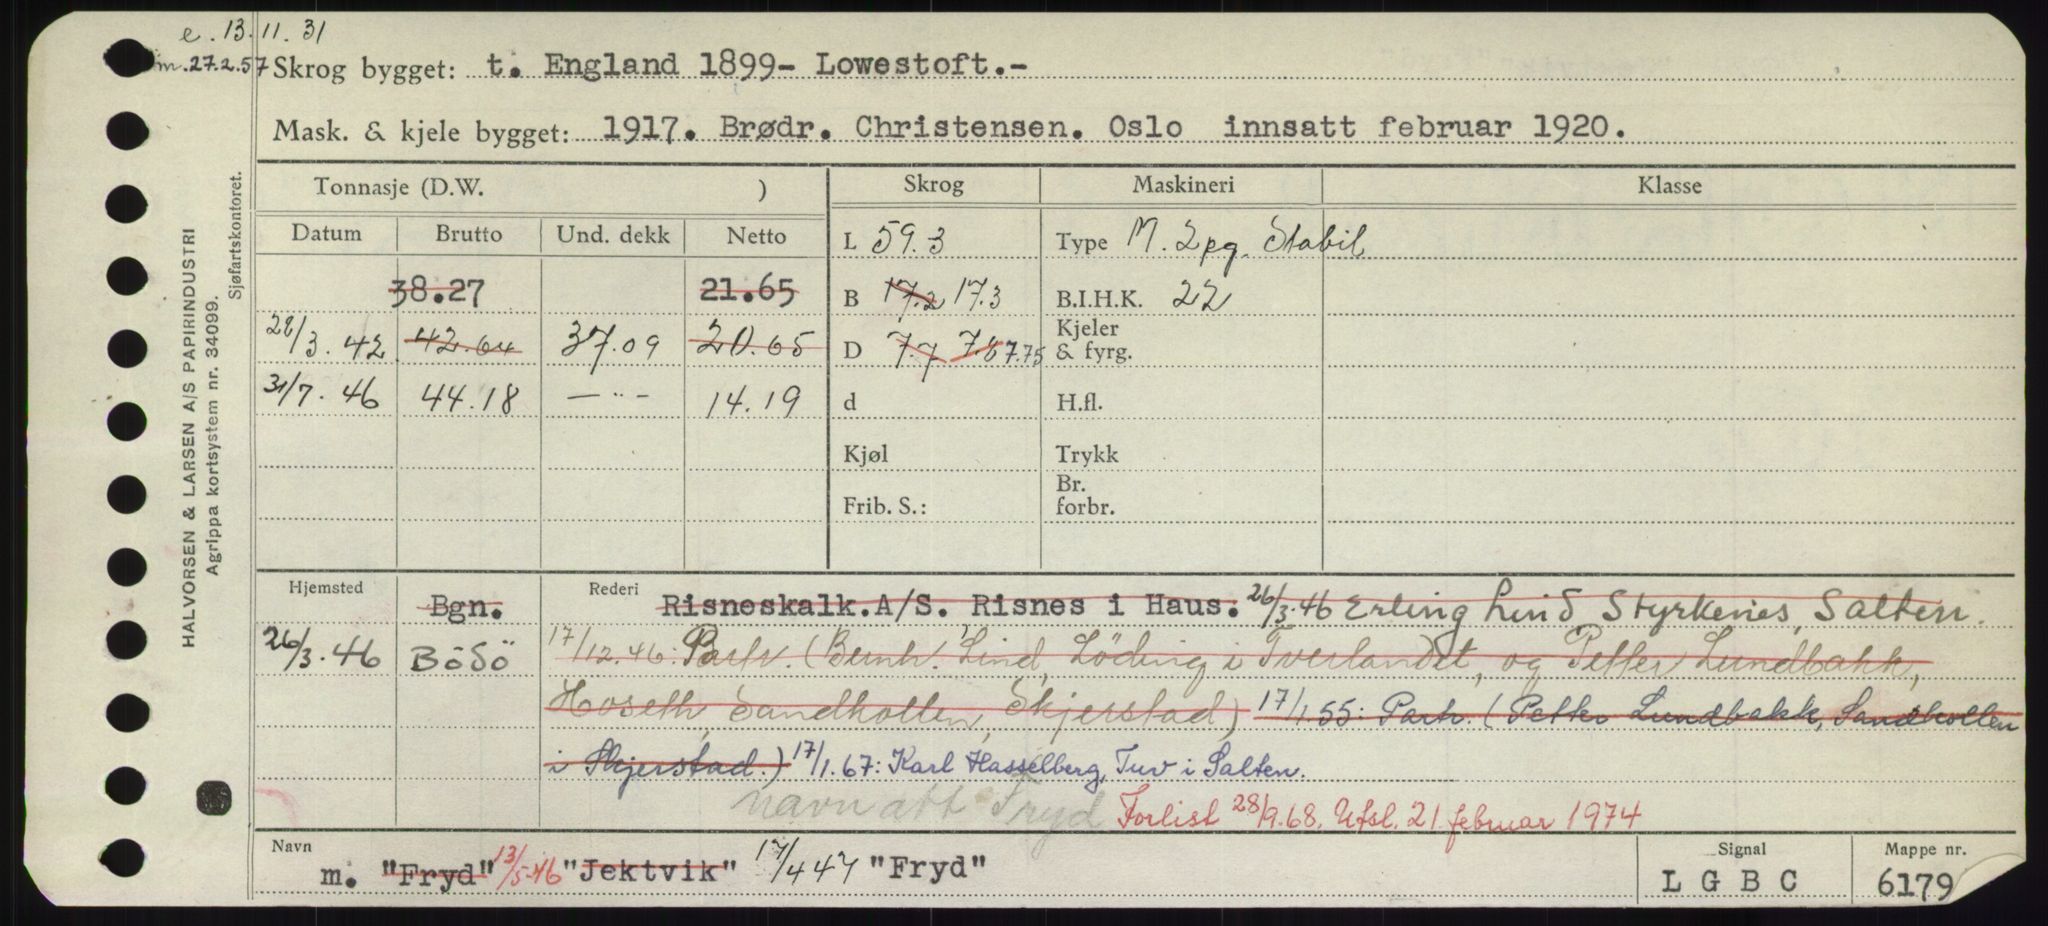 e. 13.11.31
m.27.2.57 Skrog bygget: t. England 1899- Lowestoft.-
Mask. & kjele bygget: 1917. Brødr. Christensen. Oslo innsatt februar 1920.
HALVORSEN & LARSEN A/S PAPIRINDUSTRI
Agrippa kortsystem nr. 34099.
Sjøfartskontoret.
Tonnasje (D.W. ) Skrog Maskineri Klasse
Datum Brutto Und. dekk Netto L 59.3 Type M. 2pg. Stabil
38.27 21.65 B 17.2 17.3 B.I.H.K. 22
28/3.42 42.64 37.09 20.65 D 7.7 7.8 7.75 Kjeler & fyrg.
31/7.46 44.18 —"— 14.19 d H.fl.
Kjøl Trykk
Frib. S.: Br. forbr.
Hjemsted Bgn. Rederi Risneskalk.A/S. Risnes i Haus. 26/3.46 Erling Lind Styrkenes, Salten.
26/3.46 Bödö 17/12.46: Partr. (Bernh. Lind, Löding i Tverlandet, og Petter Lundbakk,
Hoseth, Sandhollen, Skjerstad) 17/1.55: Partr. (Petter Lundbakk, Sandhollen
i Skjerstad.) 17/1.67: Karl Hasselberg, Tuv i Salten.
navn att Fryd Forlist 28/9.68. Utsl. 21. februar 1974
Navn m. "Fryd" 13/5-46 "Jektvik" 17/4 47 "Fryd" Signal L G B C Mappe nr. 6179